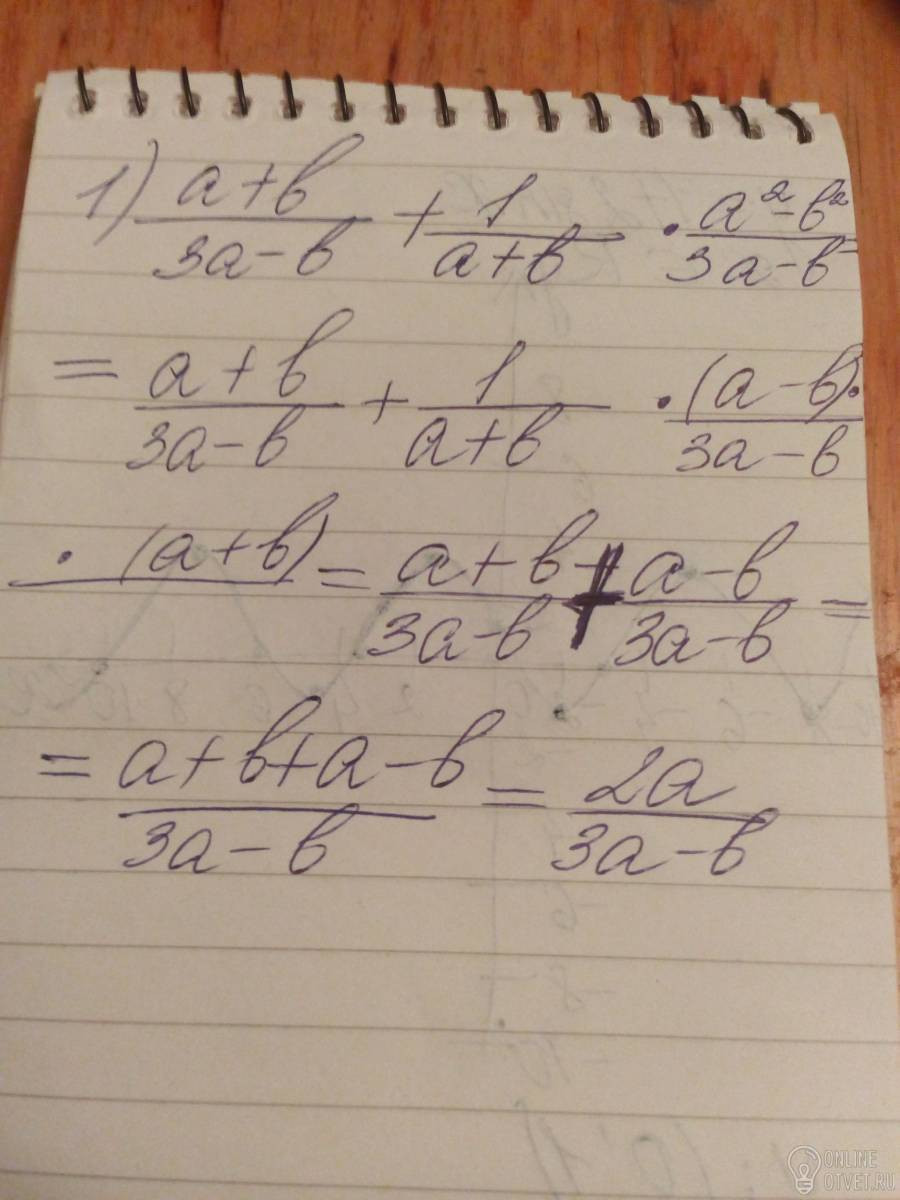 1) (a+b)/(3a-b) + 1/(a+b) · (a²-b²)/(3a-b)
= (a+b)/(3a-b) + 1/(a+b) · (a-b)·/(3a-b)
· (a+b) = (a+b)/(3a-b) + (a-b)/(3a-b) =
= (a+b+a-b)/(3a-b) = 2a/(3a-b)
ONLINE
OTVET.RU